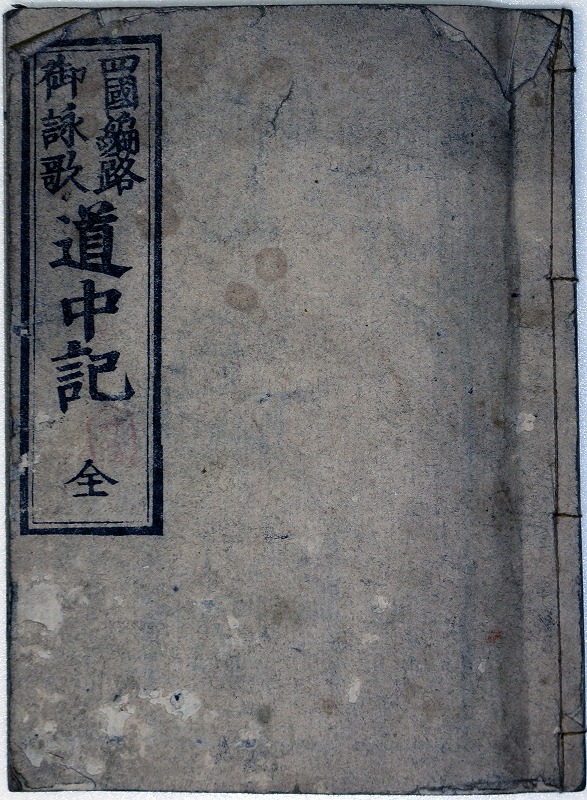 四國徧路
御詠歌
道中記
全